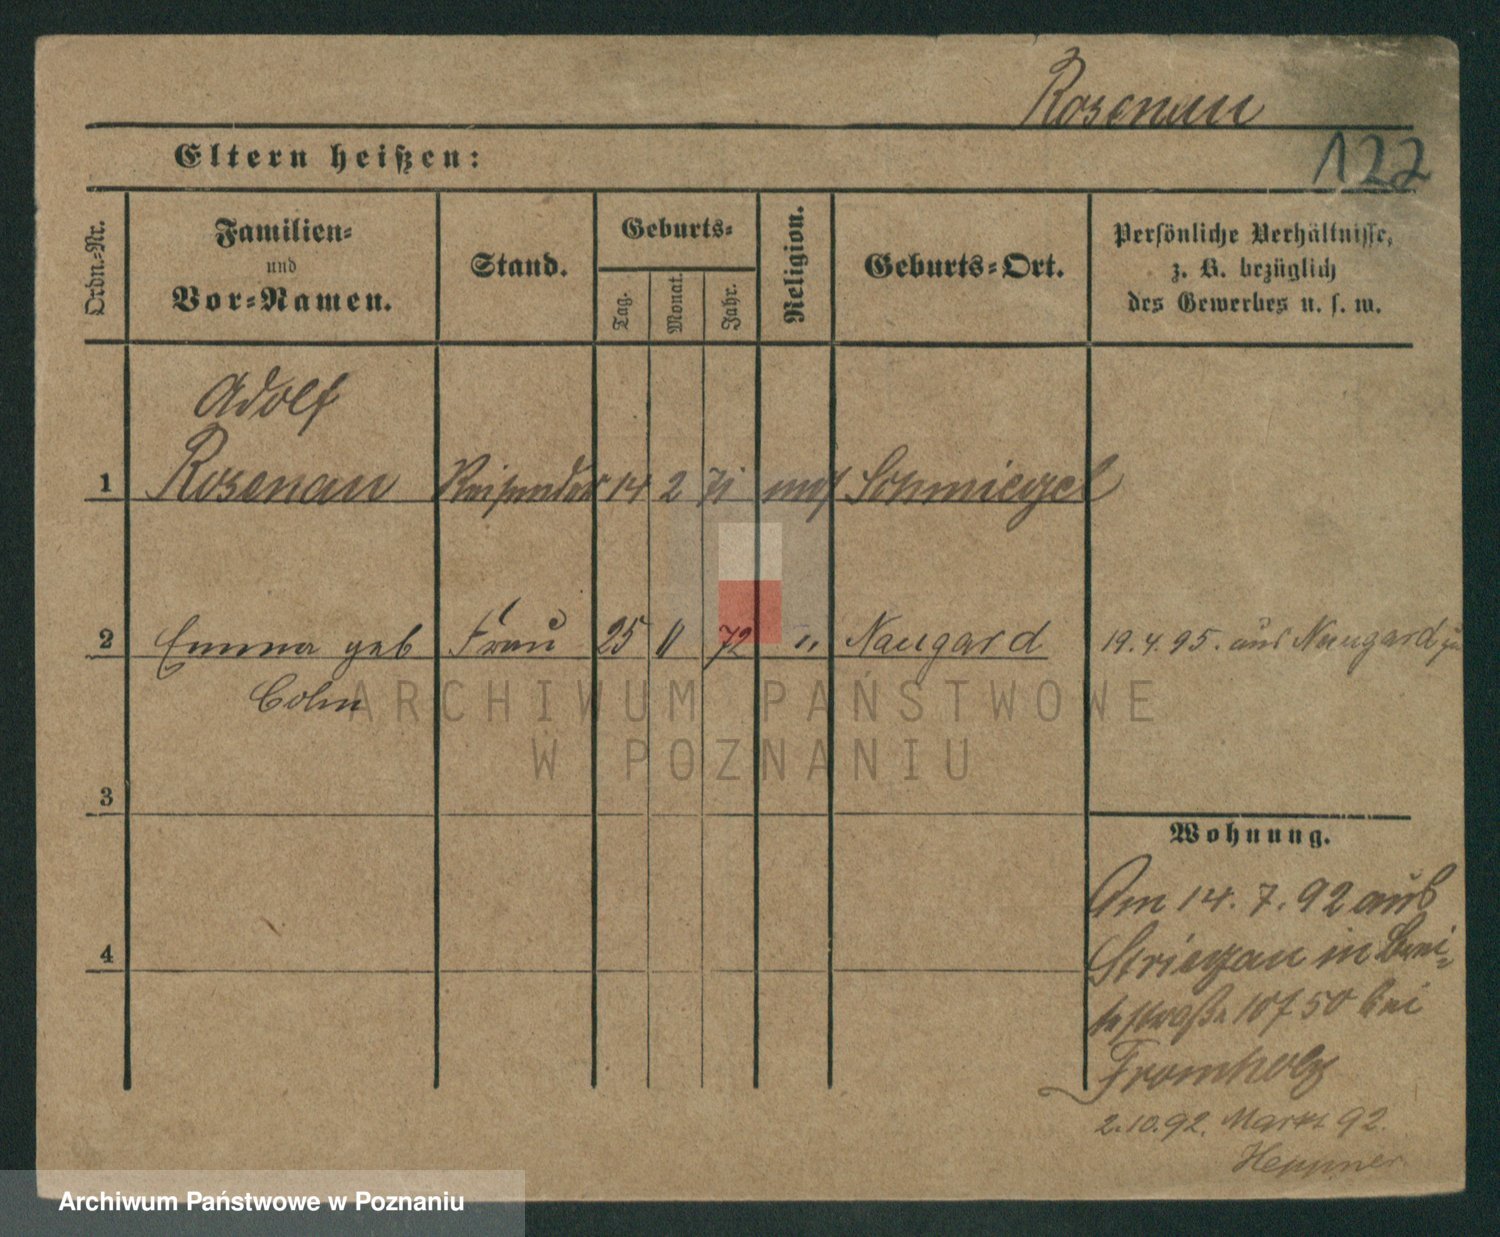 Rosenau
122
Eltern heißen:
Ordn.-Nr.
Familien-
und
Vor-Namen.
Stand.
Geburts-
Tag.
Monat.
Jahr.
Religion.
Geburts-Ort.
Persönliche Verhältnisse,
z. B. bezüglich
des Gewerbes u. s. w.
Adolf
1 Rosenau Reisender 14 2 71 mos Schmiegel
2 Emma geb Frau 25 11 72 " Naugard 19.4.95. aus Naugard zu
Cohn
ARCHIWUM PAŃSTWOWE
W POZNANIU
3
Wohnung.
Am 14. 7. 92 aus
4
Striegau in Brei-
testraße 107 50 bei
Fromholz
2.10.92. Markt 92.
Heppner
Archiwum Państwowe w Poznaniu